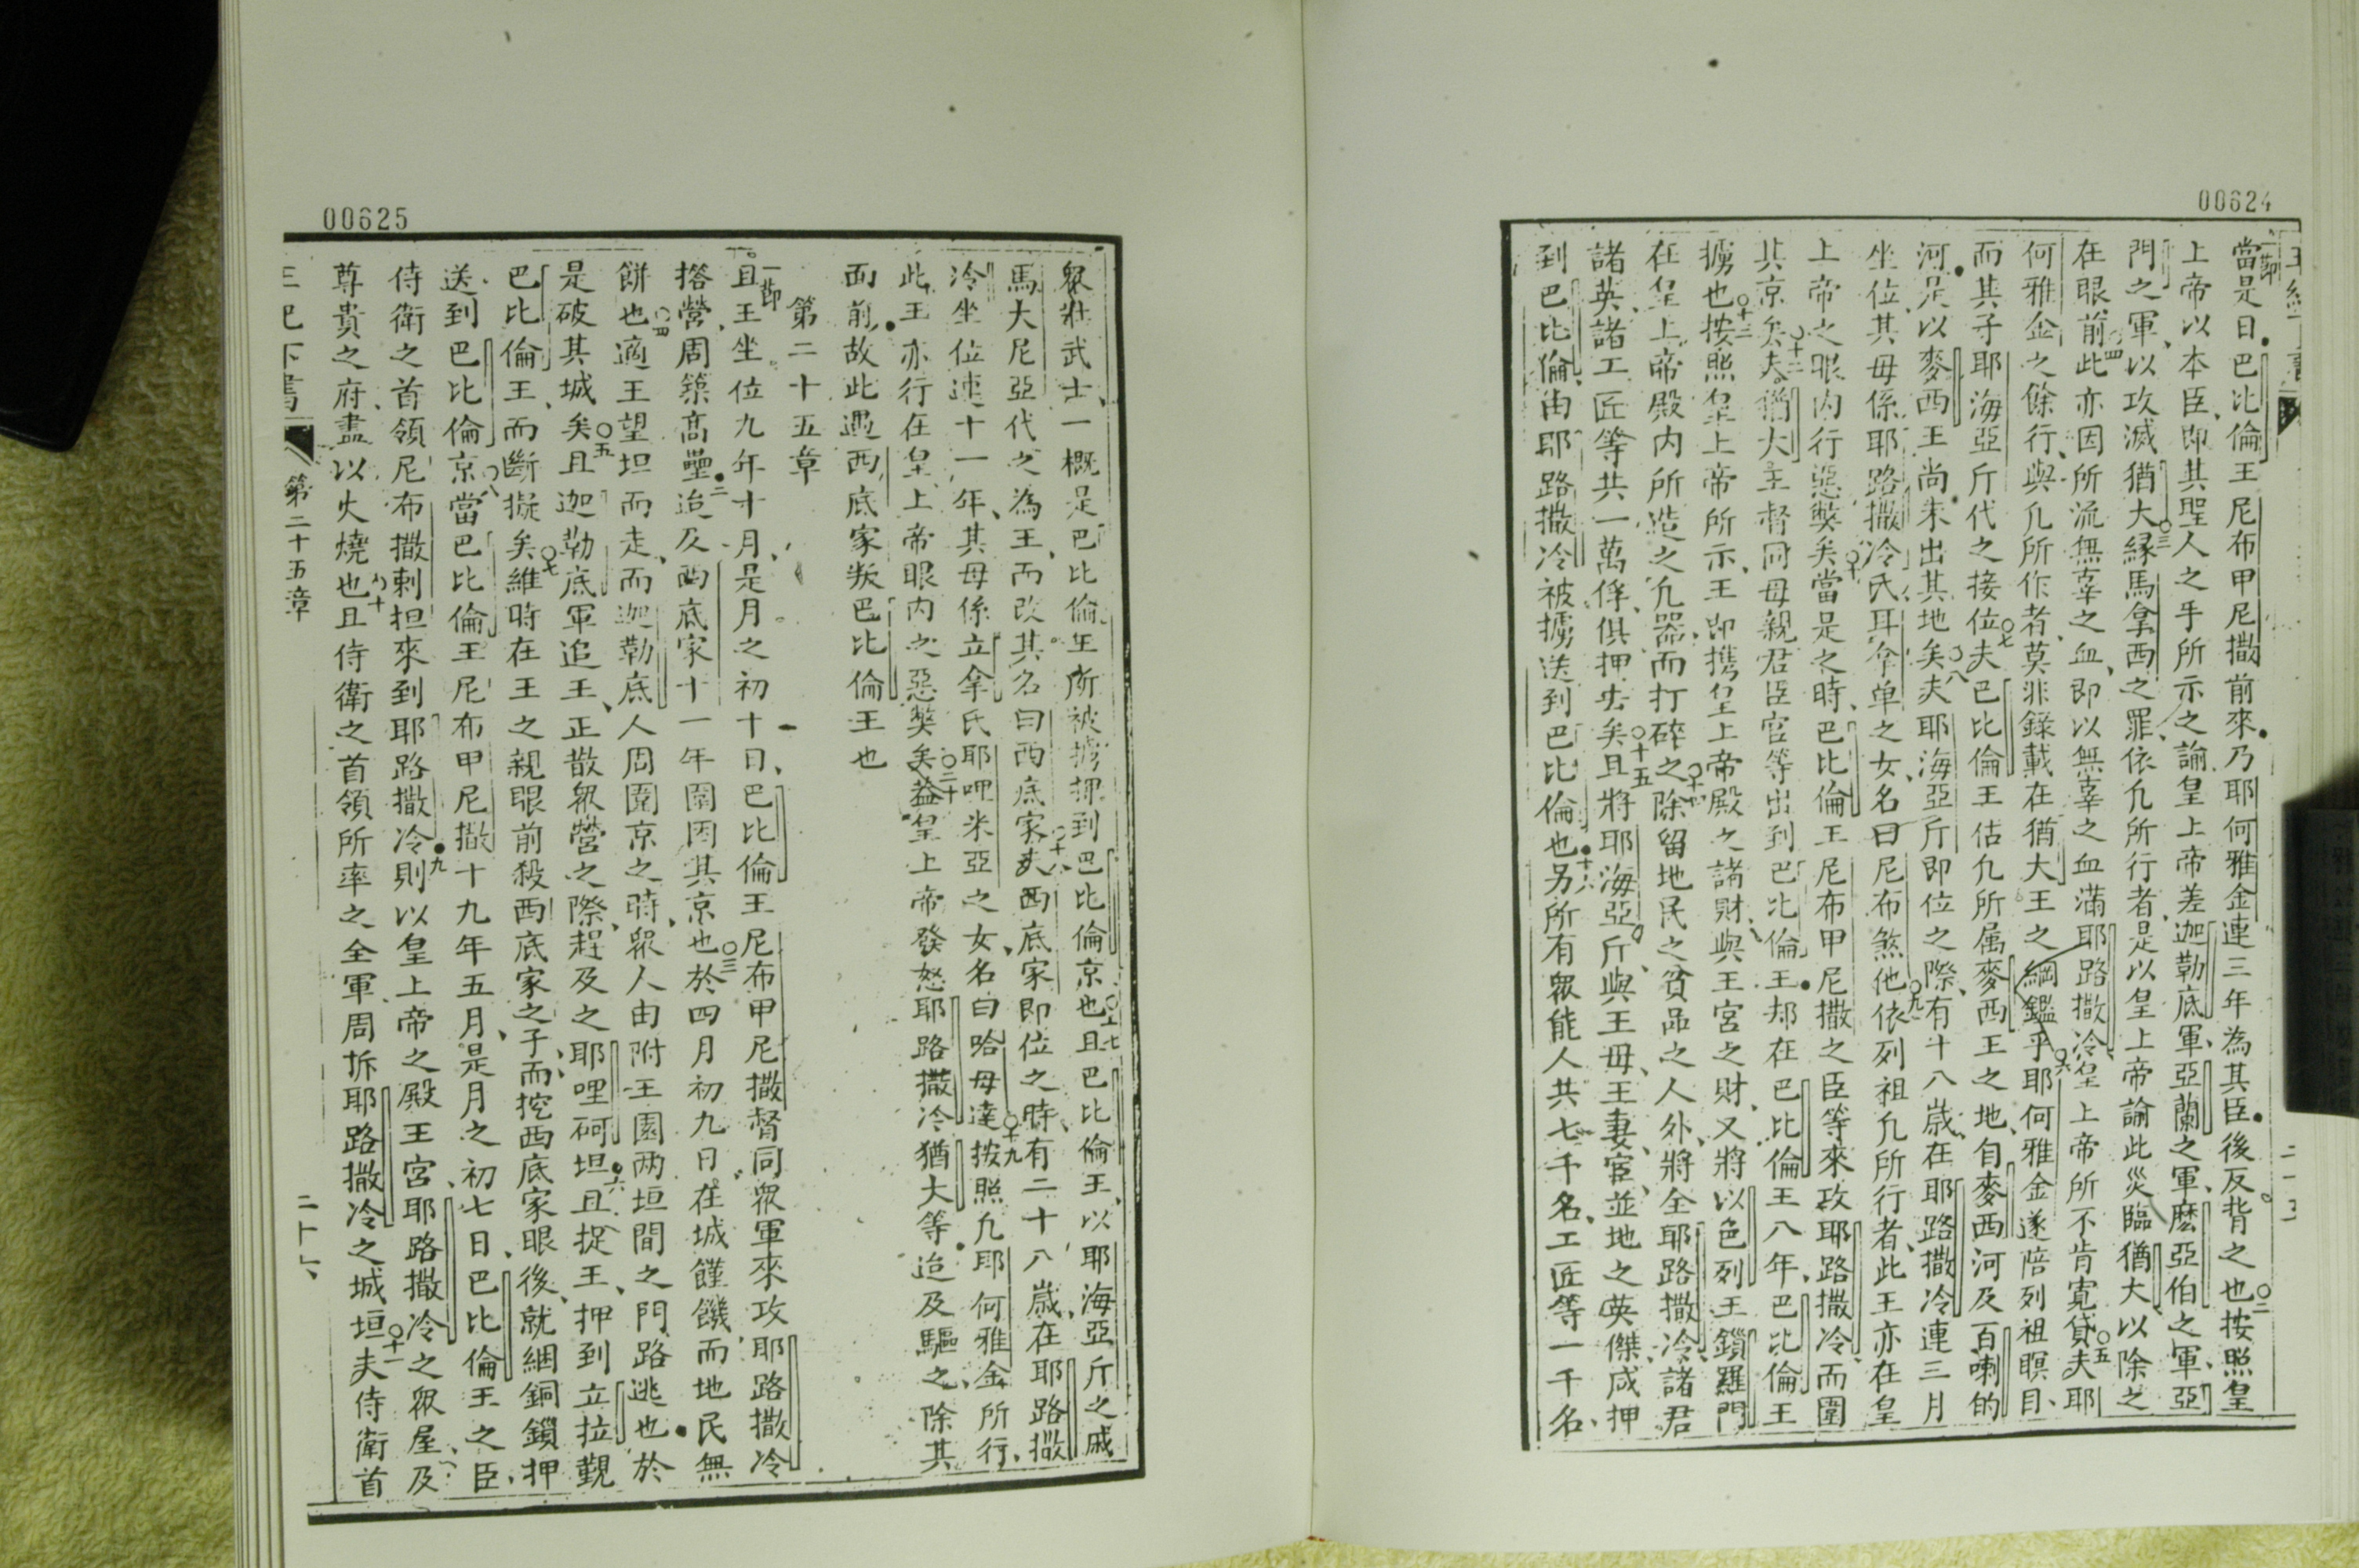 00624
當是日巴比倫王尼布甲尼撒前來乃耶何雅金連三年為其臣後反背之也○二按照皇
上帝以本臣即其聖人之手所示之諭皇上帝差迦勒底軍亞蘭之軍麽亞伯之軍亞
門之軍以攻滅猶大○三緣馬拿西之罪依凢所行者是以皇上帝諭此災臨猶大以除之
在眼前○四此亦因所流無辜之血即以無辜之血滿耶路撒冷皇上帝所不肯寬貸○五夫耶
何雅金之餘行與凢所作者莫非錄載在猶大王之綱鑑乎○六耶何雅金遂陪列祖瞑目
而其子耶海亞斤代之接位○七夫巴比倫王估凢所属麥西王之地自麥西河及百喇的
河是以麥西王尚未出其地矣○八夫耶海亞斤即位之際有十八歲在耶路撒冷連三月
坐位其母係耶路撒冷氏耳拿单之女名曰尼布煞他○九依列祖凢所行者此王亦在皇
上帝之眼内行惡獘矣○十當是之時巴比倫王尼布甲尼撒之臣等來攻耶路撒冷而圍
其京矣○十二夫猶大王督同母親君臣官等出到巴比倫王却在巴比倫王八年巴比倫王
擄也○十三按照皇上帝所示王即擕皇上帝殿之諸財與王宮之財又將以色列王鎖羅門
在皇上帝殿内所造之凢器而打碎之○十四除留地民之貧品之人外將全耶路撒冷諸君
諸英諸工匠等共一萬俘俱押去矣○十五且將耶海亞斤與王母王妻宦並地之英傑咸押
到巴比倫由耶路撒冷被擄送到巴比倫也○十六另所有眾能人共七千名工匠等一千名
00625
眾壯武士一概是巴比倫王所被擄押到巴比倫京也○十七且巴比倫王以耶海亞斤之戚
馬大尼亞代之為王而改其名曰西底家○十八夫西底家即位之時有二十八歲在耶路撒
冷坐位連十一年其母係立拿氏耶呷米亞之女名曰哈母達○十九按照凢耶何雅金所行
此王亦行在皇上帝眼内之惡獘矣○二十益皇上帝發怒耶路撒冷猶大等迨及驅之除其
面前故此遇西底家叛巴比倫王也
第二十五章
一節且王坐位九年十月是月之初十日巴比倫王尼布甲尼撒督同眾軍來攻耶路撒冷
撘營周築高壘○二迨及西底家十一年圍困其京也○三於四月初九日在城饉饑而地民無
餅也○四適王望坦而走而迦勒底人周圍京之時眾人由附王園两垣間之門路逃也於
是破其城矣○五且迦勒底軍追王正散眾營之際趕及之耶哩砢坦○六且捉王押到立拉覲
巴比倫王而斷擬矣○七維時在王之親眼前殺西底家之子而挖西底家眼後就綑銅鎖押
送到巴比倫京○八當巴比倫王尼布甲尼撒十九年五月是月之初七日巴比倫王之臣
侍衛之首領尼布撒剌担來到耶路撒冷○九則以皇上帝之殿王宮耶路撒冷之眾屋及
尊貴之府盡以火燒也○十且侍衛之首領所率之全軍周拆耶路撒冷之城垣○十一夫侍衛首
第二十五章
二十六